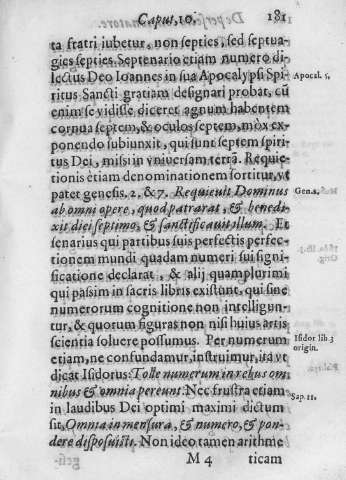 Caput. 10. 181
ta fratri iubetur, non septies, sed septua-
gies septies. Septenario etiam numero di-
lectus Deo Ioannes in sua Apocalypsi Spi-
ritus Sancti gratiam designari probat, cū
enim se vidisse diceret agnum habentem
cornua septem, & oculos septem, mòx ex-
ponendo subiunxit, qui sunt septem spiri-
tus Dei, missi in vniuersam terrā. Requie-
tionis etiam denominationem sortitur, vt
patet genesis. 2. & 7. Requieuit Dominus
ab omni opere, quod patrarat, & benedi-
xit diei septimo, & sanctificauit illum. Et
senarius qui partibus suis perfectis perfec-
tionem mundi quadam numeri sui signi-
ficatione declarat, & alij quamplurimi
qui passim in sacris libris existunt, qui sine
numerorum cognitione non intelligun-
tur, & quorum figuras non nisi huius artis
scientia soluere possumus. Per numerum
etiam, ne confundamur, instruimur, ita vt
dicat Isidorus: Tolle numerum in rebus om-
nibus & omnia pereunt. Nec frustra etiam
in laudibus Dei optimi maximi dictum
sit, Omnia in mensura, & numero, & pon-
dere disposuisti. Non ideo tamen arithme
M 4 ticam
Apocal. 5,
Gen. 2.
Isidor lib. 3
origin.
Sap. 11.